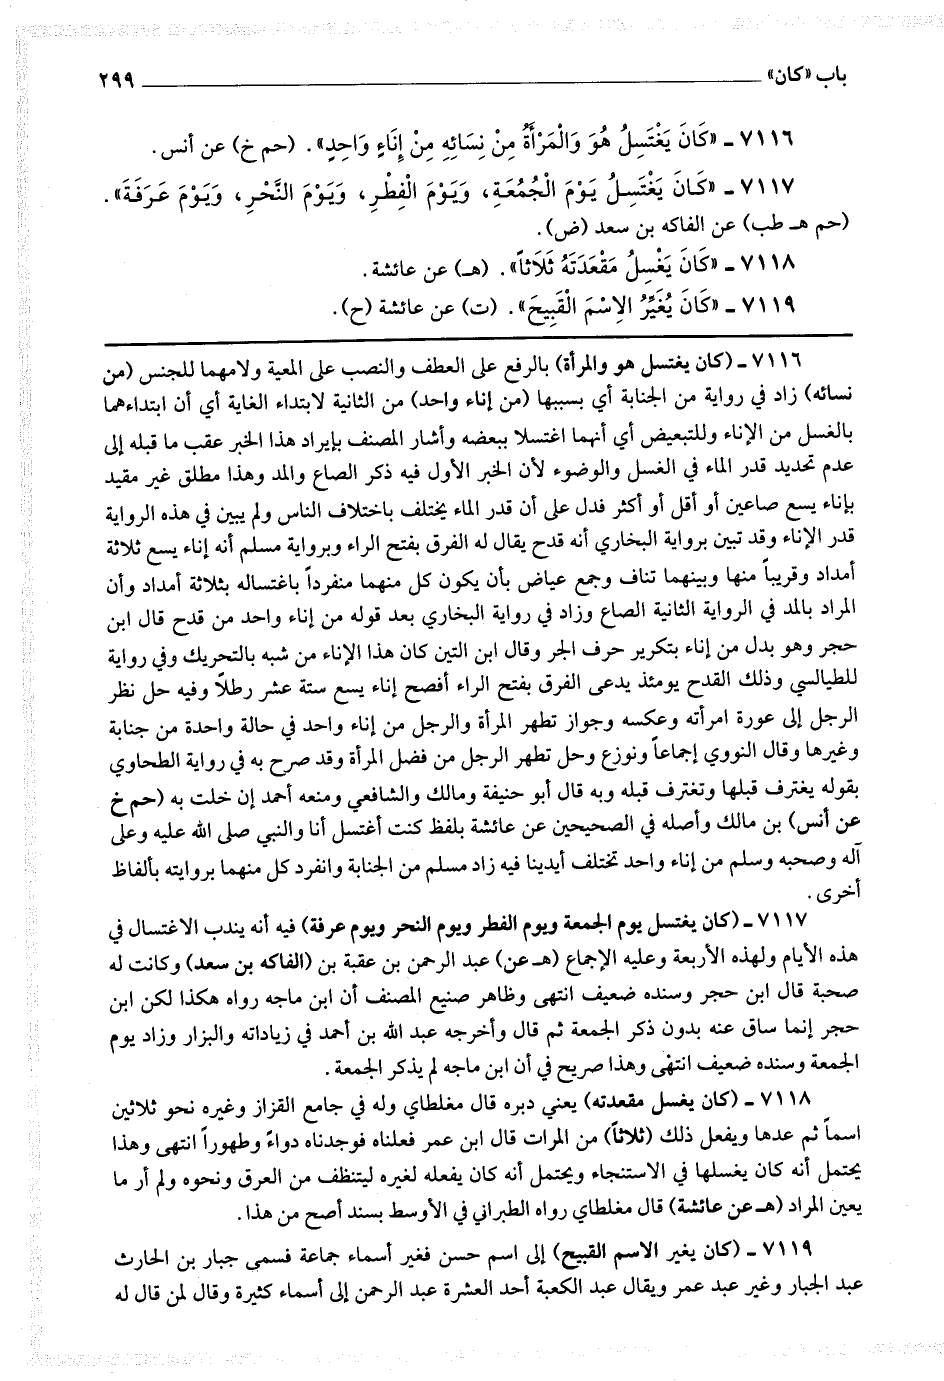 باب «كان» ٢٩٩
٧١١٦ ـ «كَانَ يَغْتَسِلُ هُوَ وَالْمَرْأَةُ مِنْ نِسَائِهِ مِنْ إِنَاءٍ وَاحِدٍ». (حم خ) عن أنس.
٧١١٧ ـ «كَانَ يَغْتَسِلُ يَوْمَ الْجُمُعَةِ، وَيَوْمَ الْفِطْرِ، وَيَوْمَ النَّحْرِ، وَيَوْمَ عَرَفَةَ».
(حم هـ طب) عن الفاكه بن سعد (ض).
٧١١٨ ـ «كَانَ يَغْسِلُ مَقْعَدَتَهُ ثَلَاثاً». (هـ) عن عائشة.
٧١١٩ ـ «كَانَ يُغَيِّرُ الِاسْمَ الْقَبِيحَ». (ت) عن عائشة (ح).
٧١١٦ ـ (كان يغتسل هو والمرأة) بالرفع على العطف والنصب على المعية ولامهما للجنس (من
نسائه) زاد في رواية من الجنابة أي بسببها (من إناء واحد) من الثانية لابتداء الغاية أي أن ابتداءهما
بالغسل من الإناء وللتبعيض أي أنهما اغتسلا ببعضه وأشار المصنف بإيراد هذا الخبر عقب ما قبله إلى
عدم تحديد قدر الماء في الغسل والوضوء لأن الخبر الأول فيه ذكر الصاع والمد وهذا مطلق غير مقيد
بإناء يسع صاعين أو أقل أو أكثر فدل على أن قدر الماء يختلف باختلاف الناس ولم يبين في هذه الرواية
قدر الإناء وقد تبين برواية البخاري أنه قدح يقال له الفرق بفتح الراء وبرواية مسلم أنه إناء يسع ثلاثة
أمداد وقريباً منها وبينهما تناف وجمع عياض بأن يكون كل منهما منفرداً باغتساله بثلاثة أمداد وأن
المراد بالمد في الرواية الثانية الصاع وزاد في رواية البخاري بعد قوله من إناء واحد من قدح قال ابن
حجر وهو بدل من إناء بتكرير حرف الجر وقال ابن التين كان هذا الإناء من شبه بالتحريك وفي رواية
للطيالسي وذلك القدح يومئذ يدعى الفرق بفتح الراء أفصح إناء يسع ستة عشر رطلاً وفيه حل نظر
الرجل إلى عورة امرأته وعكسه وجواز تطهر المرأة والرجل من إناء واحد في حالة واحدة من جنابة
وغيرها وقال النووي إجماعاً ونوزع وحل تطهر الرجل من فضل المرأة وقد صرح به في رواية الطحاوي
بقوله يغترف قبلها وتغترف قبله وبه قال أبو حنيفة ومالك والشافعي ومنعه أحمد إن خلت به (حم خ
عن أنس) بن مالك وأصله في الصحيحين عن عائشة بلفظ كنت أغتسل أنا والنبي صلى الله عليه وعلى
آله وصحبه وسلم من إناء واحد تختلف أيدينا فيه زاد مسلم من الجنابة وانفرد كل منهما بروايته بألفاظ
أخرى.
٧١١٧ ـ (كان يغتسل يوم الجمعة ويوم الفطر ويوم النحر ويوم عرفة) فيه أنه يندب الاغتسال في
هذه الأيام ولهذه الأربعة وعليه الإجماع (هـ عن) عبد الرحمن بن عقبة بن (الفاكه بن سعد) وكانت له
صحبة قال ابن حجر وسنده ضعيف انتهى وظاهر صنيع المصنف أن ابن ماجه رواه هكذا لكن ابن
حجر إنما ساق عنه بدون ذكر الجمعة ثم قال وأخرجه عبد الله بن أحمد في زياداته والبزار وزاد يوم
الجمعة وسنده ضعيف انتهى وهذا صريح في أن ابن ماجه لم يذكر الجمعة.
٧١١٨ ـ (كان يغسل مقعدته) يعني دبره قال مغلطاي وله في جامع القزاز وغيره نحو ثلاثين
اسماً ثم عدها ويفعل ذلك (ثلاثاً) من المرات قال ابن عمر فعلناه فوجدناه دواءً وطهوراً انتهى وهذا
يحتمل أنه كان يغسلها في الاستنجاء ويحتمل أنه كان يفعله لغيره ليتنظف من العرق ونحوه ولم أر ما
يعين المراد (هـ عن عائشة) قال مغلطاي رواه الطبراني في الأوسط بسند أصح من هذا.
٧١١٩ ـ (كان يغير الاسم القبيح) إلى اسم حسن فغير أسماء جماعة فسمى جبار بن الحارث
عبد الجبار وغير عبد عمر ويقال عبد الكعبة أحد العشرة عبد الرحمن إلى أسماء كثيرة وقال لمن قال له